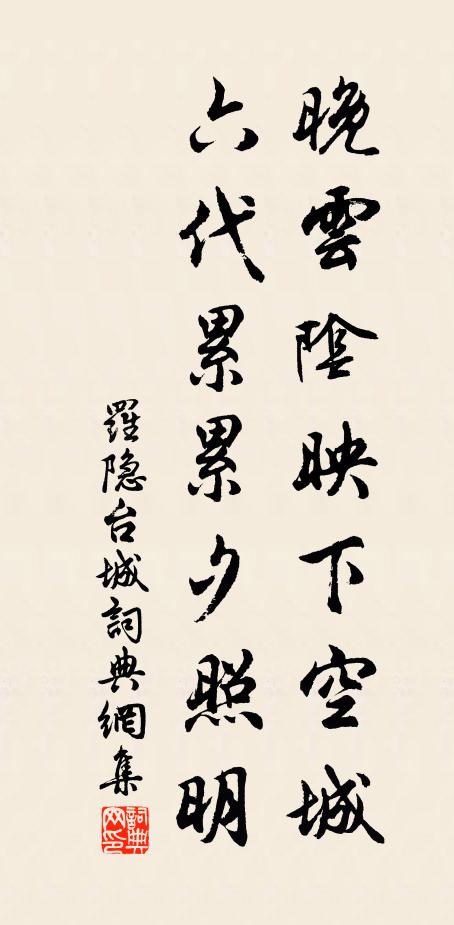 晚雲陰映下空城
六代累累夕照明
羅隐台城詞典網集
詞典網印